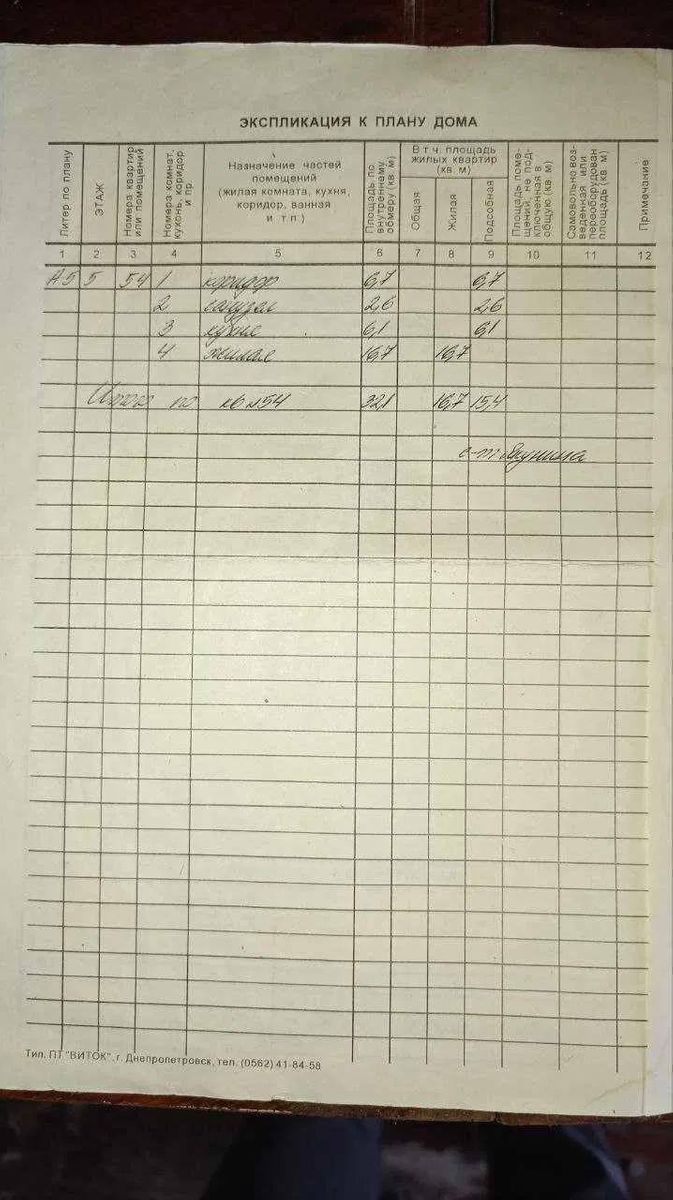 ЭКСПЛИКАЦИЯ К ПЛАНУ ДОМА
Литер по плану
ЭТАЖ
Номера квартир или помещений
Номера комнат, кухонь, коридор и пр
Назначение частей
помещений
(жилая комната, кухня,
коридор, ванная
и т п )
Площадь по внутреннему обмеру (кв м)
В т ч площадь
жилых квартир
(кв м)
Общая
Жилая
Подсобная
Площадь помещений, не подключенная в общую (кв м)
Самовольно возведенная или переоборудован площадь (кв м)
Примечание
1 2 3 4 5 6 7 8 9 10 11 12
А5 5 54 1 коридор 6,7 6,7
2 санузел 2,6 2,6
3 кухня 6,1 6,1
4 жилая 16,7 16,7
Итого по кв №54 32,1 16,7 15,4
Тип. ПТ "ВИТОК", г. Днепропетровск, тел. (0562) 41-84-58